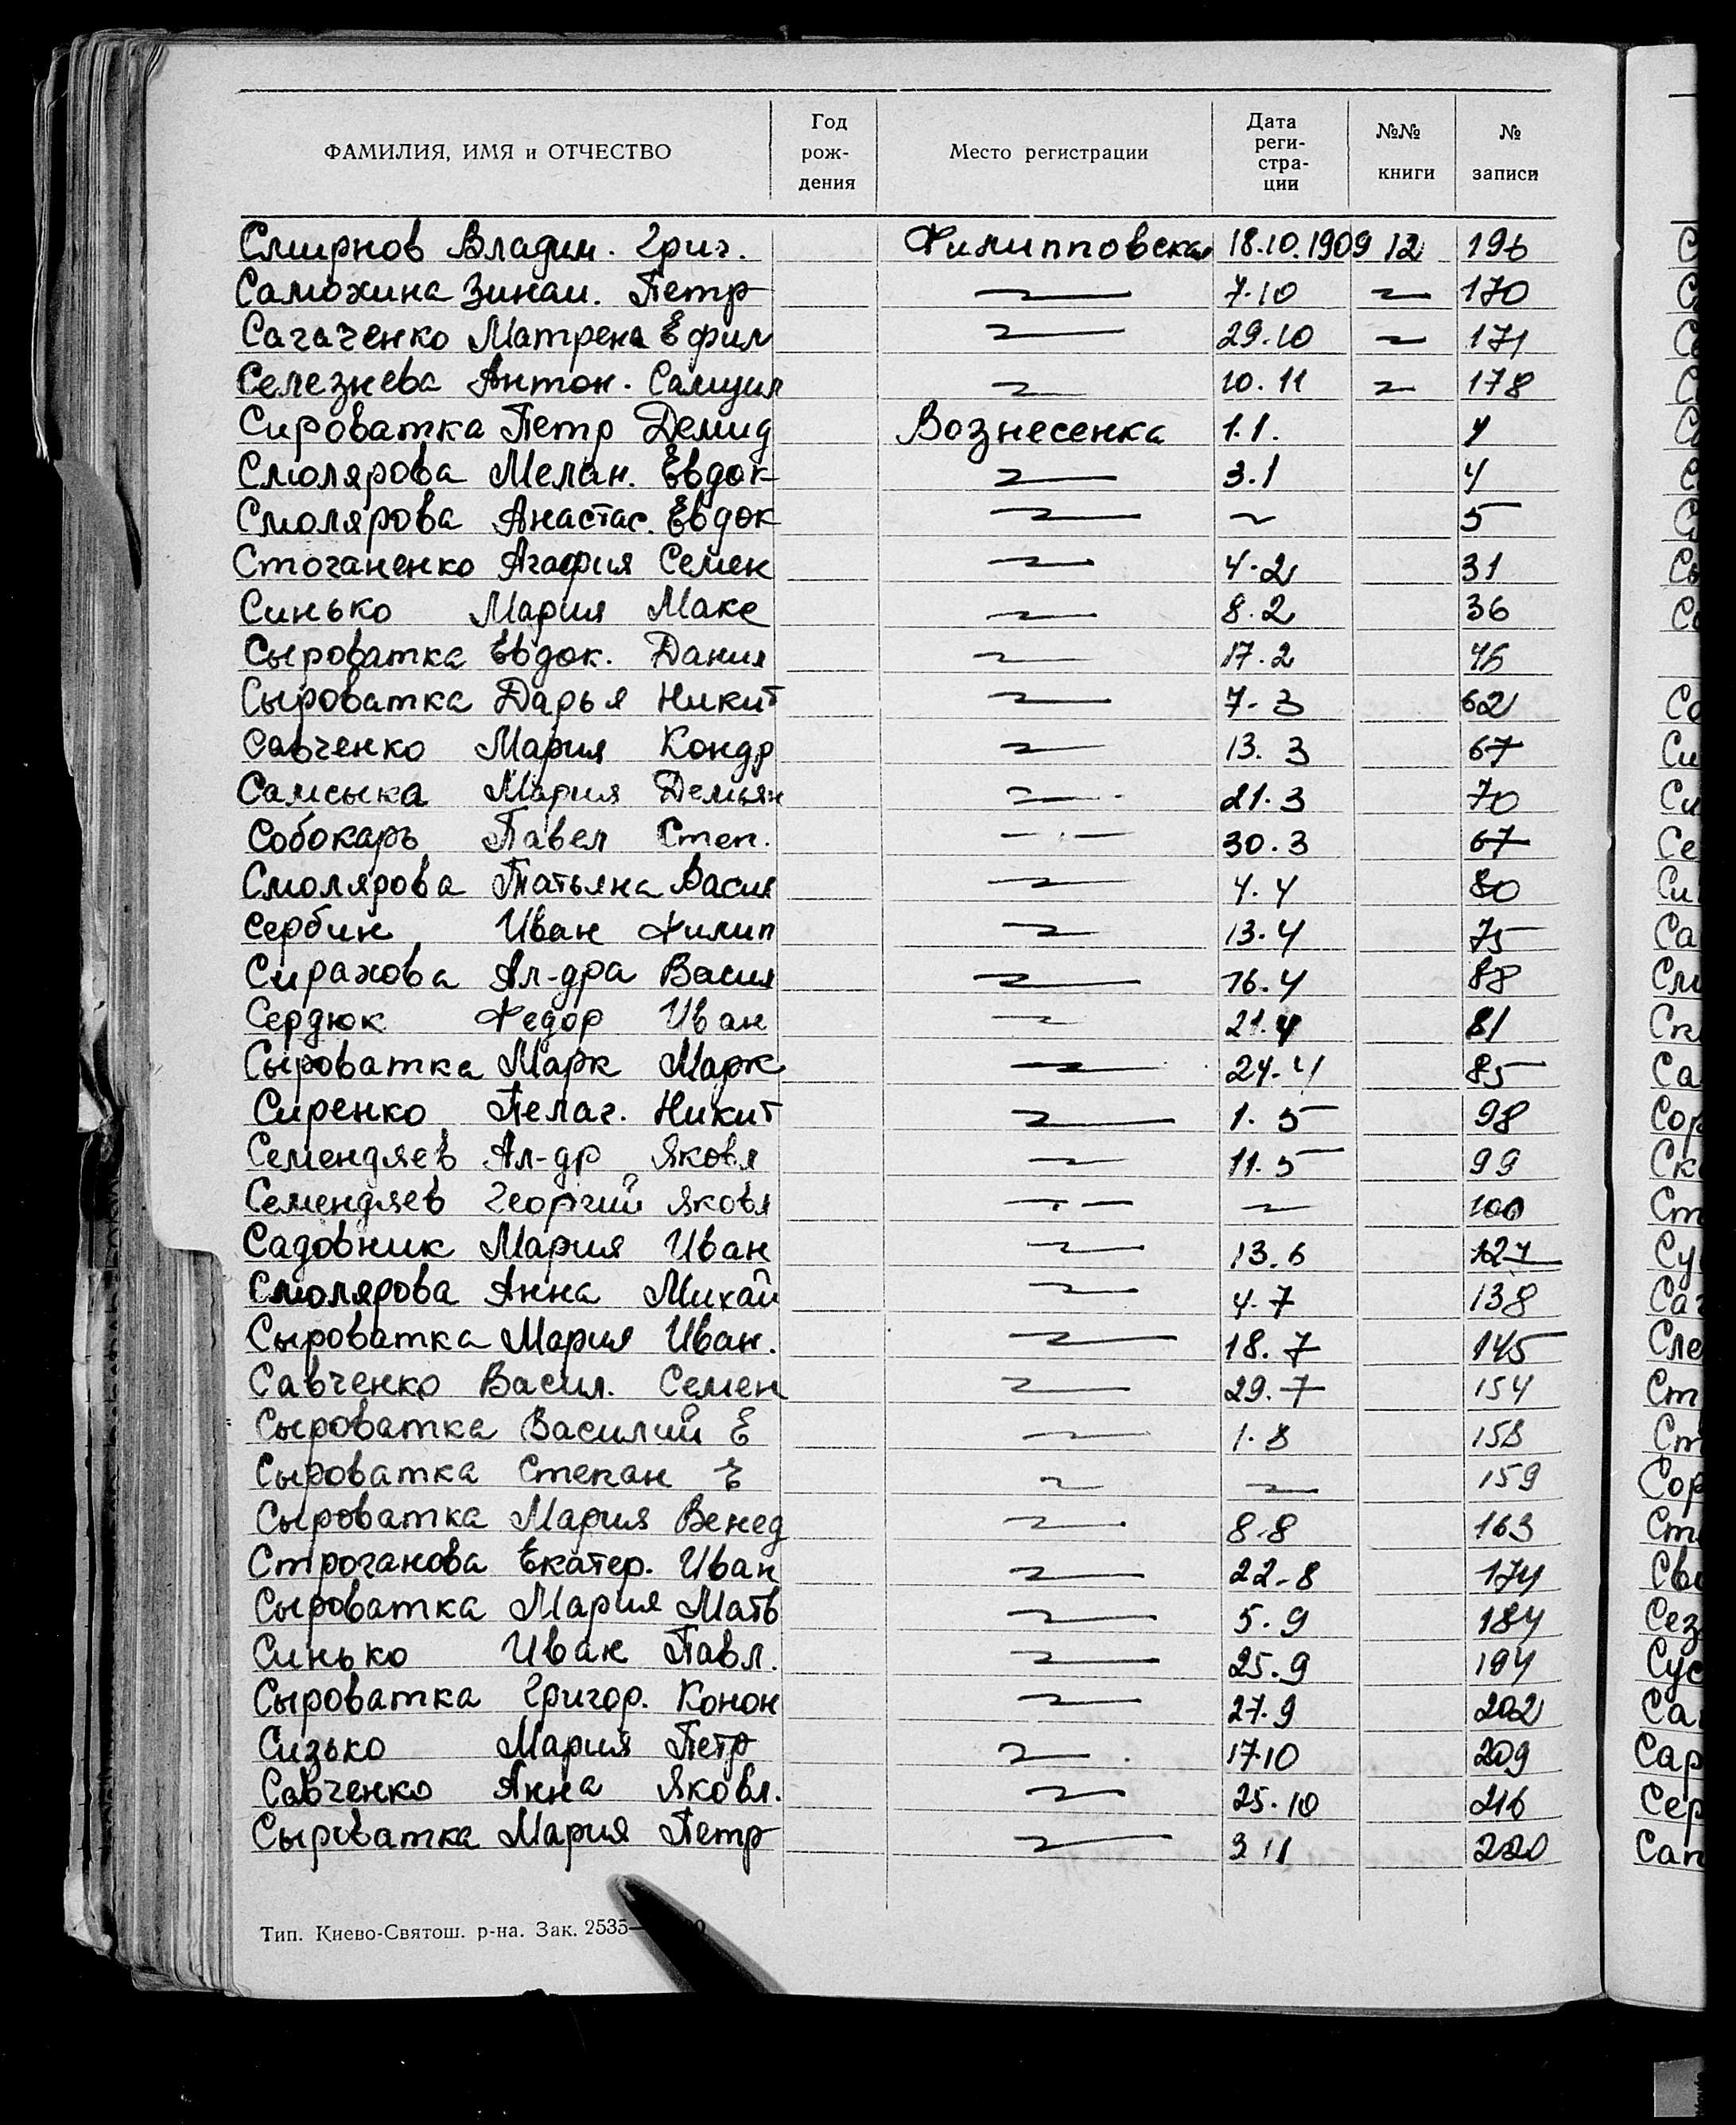 ФАМИЛИЯ, ИМЯ и ОТЧЕСТВО | Год рож- дения | Место регистрации | Дата реги- стра- ции | №№ книги | № записи
Смирнов Владим. Григ. Филипповская 18.10.1909 12 196
Самохина Зинаи. Петр 〃 7.10 〃 170
Сагаченко Матрена Ефим 〃 29.10 〃 171
Селезнева Антон. Самуил 〃 10.11 〃 178
Сироватка Петр Демид Вознесенка 1.1.
Смолярова Мелан. Евдок 〃 3.1 4
Смолярова Анастас. Евдок 〃 〃 5
Стоганенко Агафия Семен 〃 4.2 31
Синько Мария Макс 〃 8.2 36
Сыроватка Евдок. Данил 〃 17.2 46
Сыроватка Дарья Никит 〃 7.3 62
Савченко Мария Кондр 〃 13.3 67
Самсыка Мария Демьян 〃 21.3 70
Собокарь Павел Степ. 〃 30.3 67
Смолярова Татьяна Васил 〃 4.4 80
Сербин Иван Филип 〃 13.4 75
Сирахова Ал-дра Васил 〃 16.4 88
Сердюк Федор Иван 〃 21.4 81
Сыроватка Марк Марк 〃 24.4 85
Сиренко Пелаг. Никит 〃 1.5 98
Семендяев Ал-др Яковл 〃 11.5 99
Семендяев Георгий Яковл 〃 〃 100
Садовник Мария Иван 〃 13.6 127
Смолярова Анна Михай 〃 4.7 138
Сыроватка Мария Иван. 〃 18.7 145
Савченко Васил. Семен 〃 29.7 154
Сыроватка Василий Е 〃 1.8 158
Сыроватка Степан Е 〃 〃 159
Сыроватка Мария Венед 〃 8.8 163
Строганова Екатер. Иван 〃 22.8 174
Сыроватка Мария Матв 〃 5.9 184
Синько Иван Павл. 〃 25.9 194
Сыроватка Григор. Конон 〃 27.9 202
Сизько Мария Петр 〃 17.10 209
Савченко Анна Яковл. 〃 25.10 216
Сыроватка Мария Петр 〃 3 11 220
Тип. Киево-Святош. р-на. Зак. 2535—